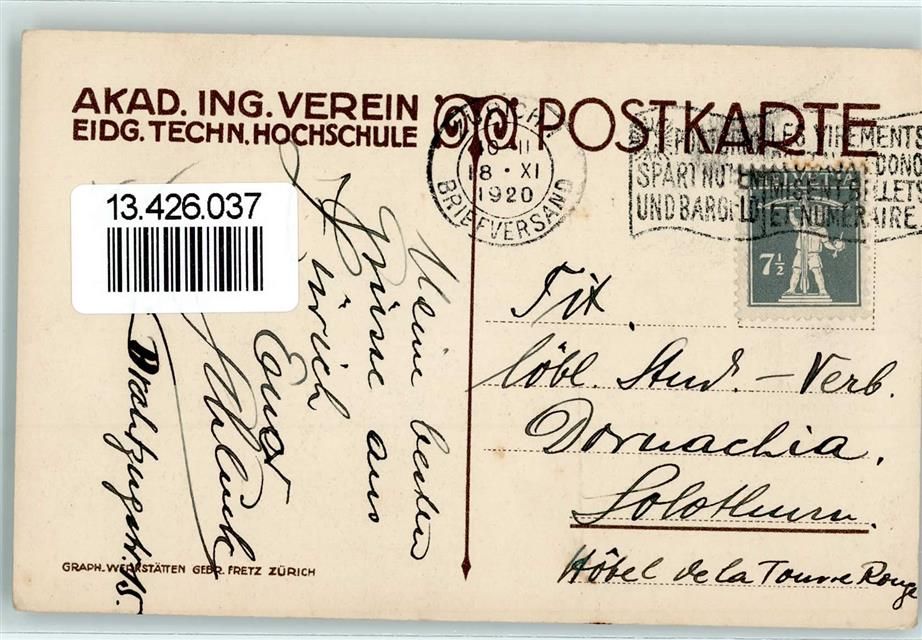 AKAD. ING. VEREIN
EIDG. TECHN. HOCHSCHULE
POSTKARTE
18 · XI
1920
BRIEFVERSAND
LES VIREMENTS
SPART NOTEN
UND BARGELD
BILLETS
ET NUMERAIRE
7½
13.426.037
Meine besten
Grüsse aus
Zürich
Drahtzugstr. 15.
Tit.
löbl. Stud. – Verb.
Dornachia.
Solothurn.
Hôtel de la Tourre Rouge
GRAPH. WERKSTÄTTEN GEBR. FRETZ ZÜRICH